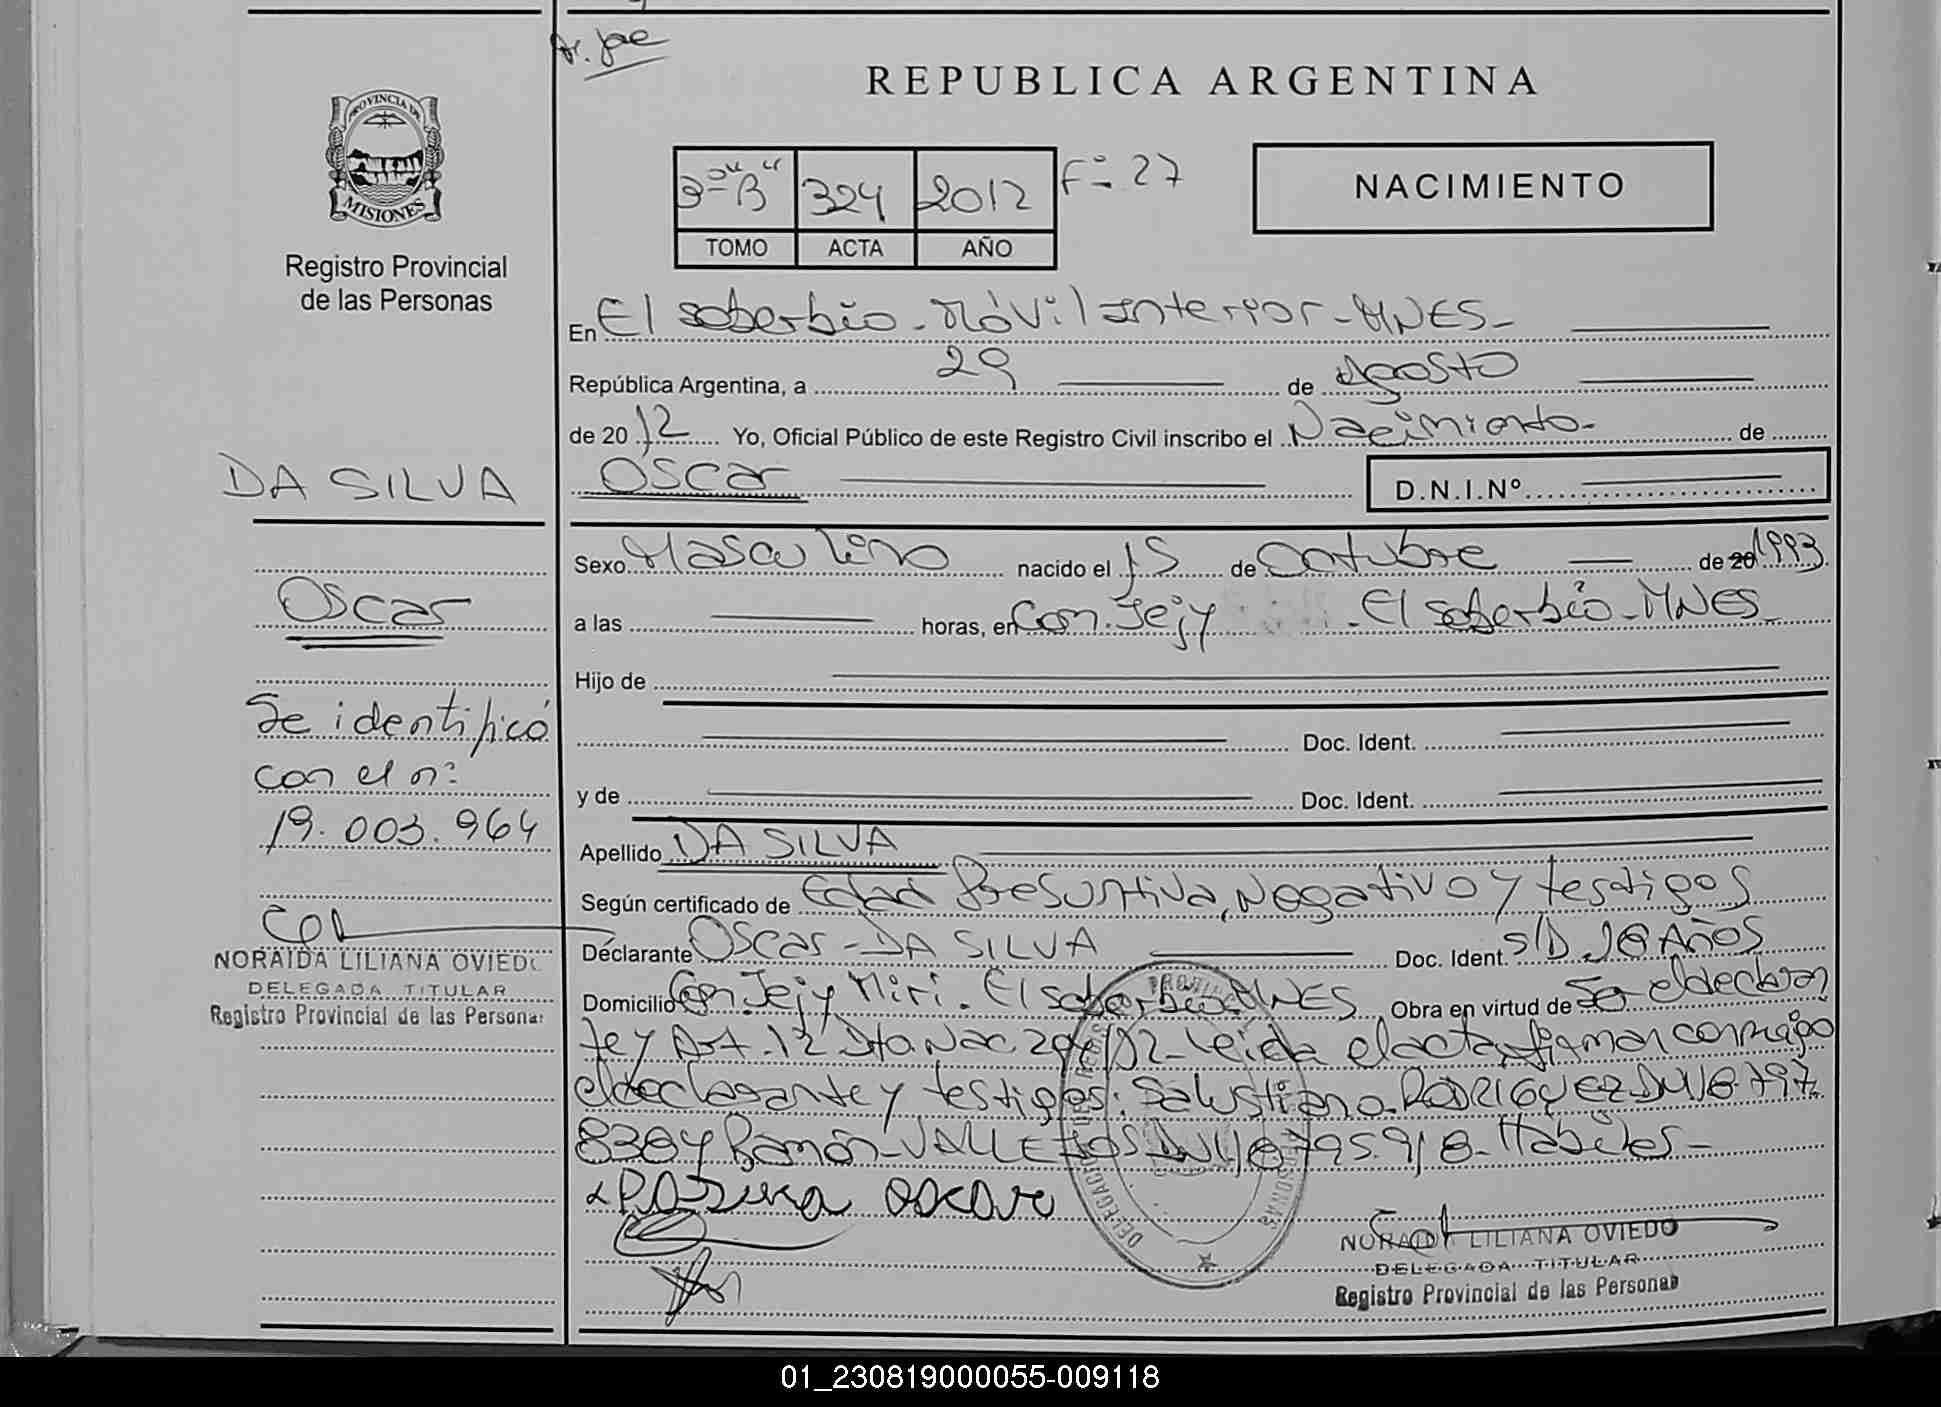 REPUBLICA ARGENTINA
PROVINCIA DE
MISIONES
Registro Provincial
de las Personas
324 2012 Fº 27
TOMO ACTA AÑO
NACIMIENTO
En El soberbio - Móvil Interior - MNES -
República Argentina, a 29 de Agosto
de 2012 Yo, Oficial Público de este Registro Civil inscribo el Nacimiento - de
Oscar D.N.I.Nº
DA SILVA
Oscar
Se identificó
con el nº
19.003.964
NORAIDA LILIANA OVIEDO
DELEGADA TITULAR
Registro Provincial de las Personas
Sexo Masculino nacido el 15 de Octubre de 20 1993
a las horas, en Con. Jejy - El soberbio - MNES
Hijo de
Doc. Ident.
y de Doc. Ident.
Apellido DA SILVA
Según certificado de Edad Presuntiva, Negativo y testigos
Declarante Oscar - DA SILVA Doc. Ident. S/D 18 AÑOS
Domicilio Con. Jejy Miri - El soberbio MNES Obra en virtud de Ser el declaran
te y Art. 12 Dto Nac. Leida el acta, firman conmigo
el declarante y testigos: Salustiano RODRIGUEZ DNI 18.797.
838 y Ramón VALLEJOS DNI 18.795.918 - Habiles -
DA Silva OSCAR
NORAIDA LILIANA OVIEDO
DELEGADA TITULAR
Registro Provincial de las Personas
01_230819000055-009118